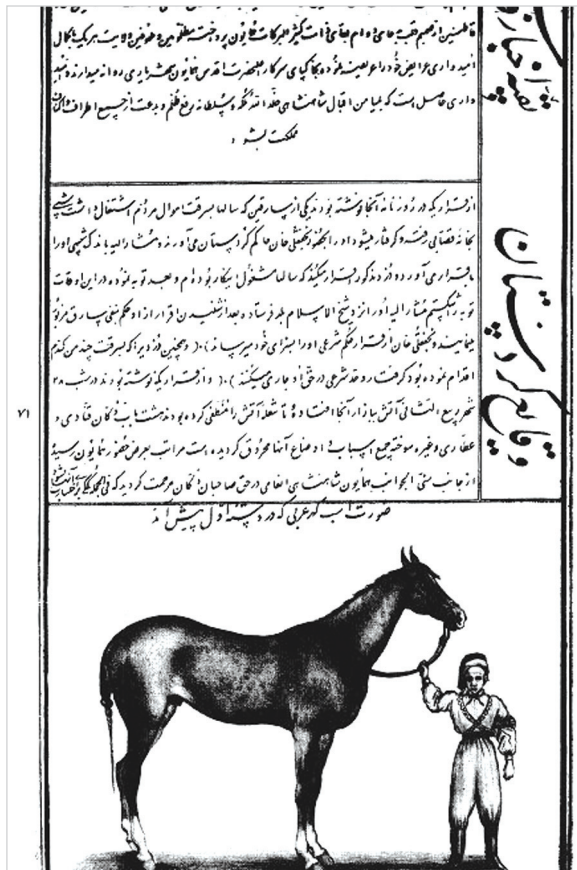 از صمیم قلب دعای دوام بقای ذات کثیر البرکات همایون پرداخته مظلومین و ولایت هر یک بکمال
امیدواری عرایض خود را عریضه نموده بخاکپای سرکار اعلیحضرت اقدس همایون شهریاری روانه میدارند و امید
واری حاصل است که بمیامن اقبال شاهنشاهی خلد الله ملکه و سلطانه رفع ظلم و بدعت از جمیع اطراف و اکناف
مملکت بشود
بقیه اخبار
وقایع کردستان
از قراریکه در روزنامه آنجا نوشته بودند یکی از سارقین که سالها بسرقت اموال مردم اشتغال داشت
خانه قصابی رفته و گرفتار میشود او را نجفقلی خان حاکم کردستان می آورند و مشار الیه او را
باقرار می آورد دزد مذکور اقرار میکند که سالها مشغول بکار بوده ام و عهد توبه نموده در این اوقات
توبه شکستم مشار الیه او را نزد شیخ الاسلام فرستاده بعد از شنیدن اقرار از او حکم سارق مزبور
مینمایند و نجفقلی خان از قرار حکم شرعی او را بسزای خود میرساند و همچنین دزدیرا که بسرقت چند من گندم
اقدام نموده بود گرفت و حد شرعی در حق او جاری میکنند و از قراریکه نوشته بودند در شب ۲۸
شهر ربیع الثانی آتش ببازار آنجا افتاده تا شعله آتش را منطفی کرده بودند هشت باب دکان قنادی و
عطاری و غیره سوخته جمیع اسباب و اوضاع آنها محروق گردیده است مراتب بعرض حضور همایون رسید
از جانب سنی الجوانب همایون شاهنشاهی انعامی در حق صاحبان دکان مرحمت گردید که فی الجمله
صورت اسب کهر عربی که در دسته اول پیش آمد
۷۱